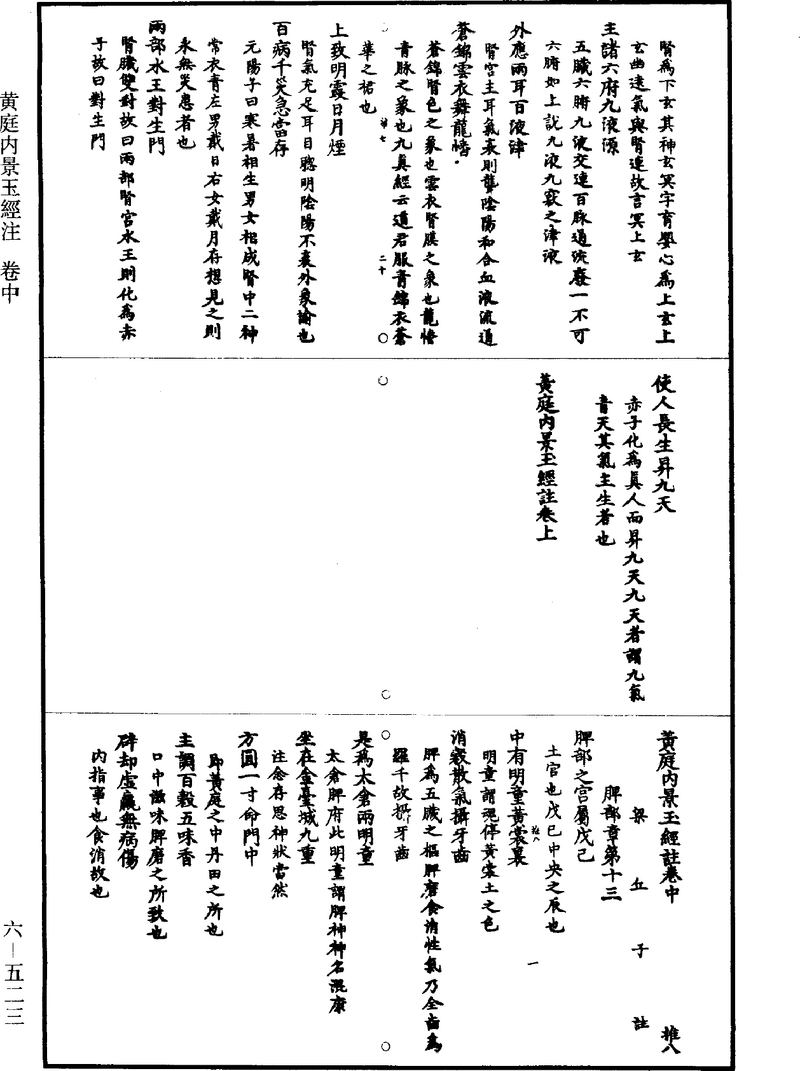 腎為下玄其神玄冥字育嬰心為上玄上
玄幽遠氣與腎連故言冥上玄
主諸六府九液源
五臟六腑九液交連百脉通流廢一不可
六腑如上說九液九竅之津液
外應兩耳百液津
腎宮主耳氣衰則聾陰陽和合血液流通
蒼錦雲衣舞龍幡
蒼錦腎色之象也雲衣腎膜之象也龍幡
青脉之象也九真經云道君服青錦衣蒼
華之裙也
二十
上致明霞日月煙
腎氣充足耳目聰明陰陽不衰外象諭也
百病千災急當存
元陽子曰寒暑相生男女相成腎中二神
常衣青左男戴日右女戴月存想見之則
永無災患者也
兩部水王對生門
腎臟雙對故曰兩部腎宮水王則化為赤
子故曰對生門
使人長生昇九天
赤子化為真人而昇九天九天者謂九氣
青天其氣主生者也
黃庭內景玉經註卷上
黃庭內景玉經註卷中 推八
梁丘子註
脾部章第十三
脾部之宮屬戊己
土宮也戊巳中央之辰也
中有明童黃裳裏
推八 一
明童謂魂停黃裳土之色
消穀散氣攝牙齒
脾為五臟之樞脾磨食消性氣乃全齒為
羅千故攝牙齒
是為太倉兩明童
太倉脾府此明童謂脾神神名混康
坐在金臺城九重
注念存思神狀當然
方圓一寸命門中
即黃庭之中丹田之所也
主調百穀五味香
口中滋味脾磨之所致也
辟却虛羸無病傷
內指事也食消故也
黄庭内景玉經注 卷中
六—五二三